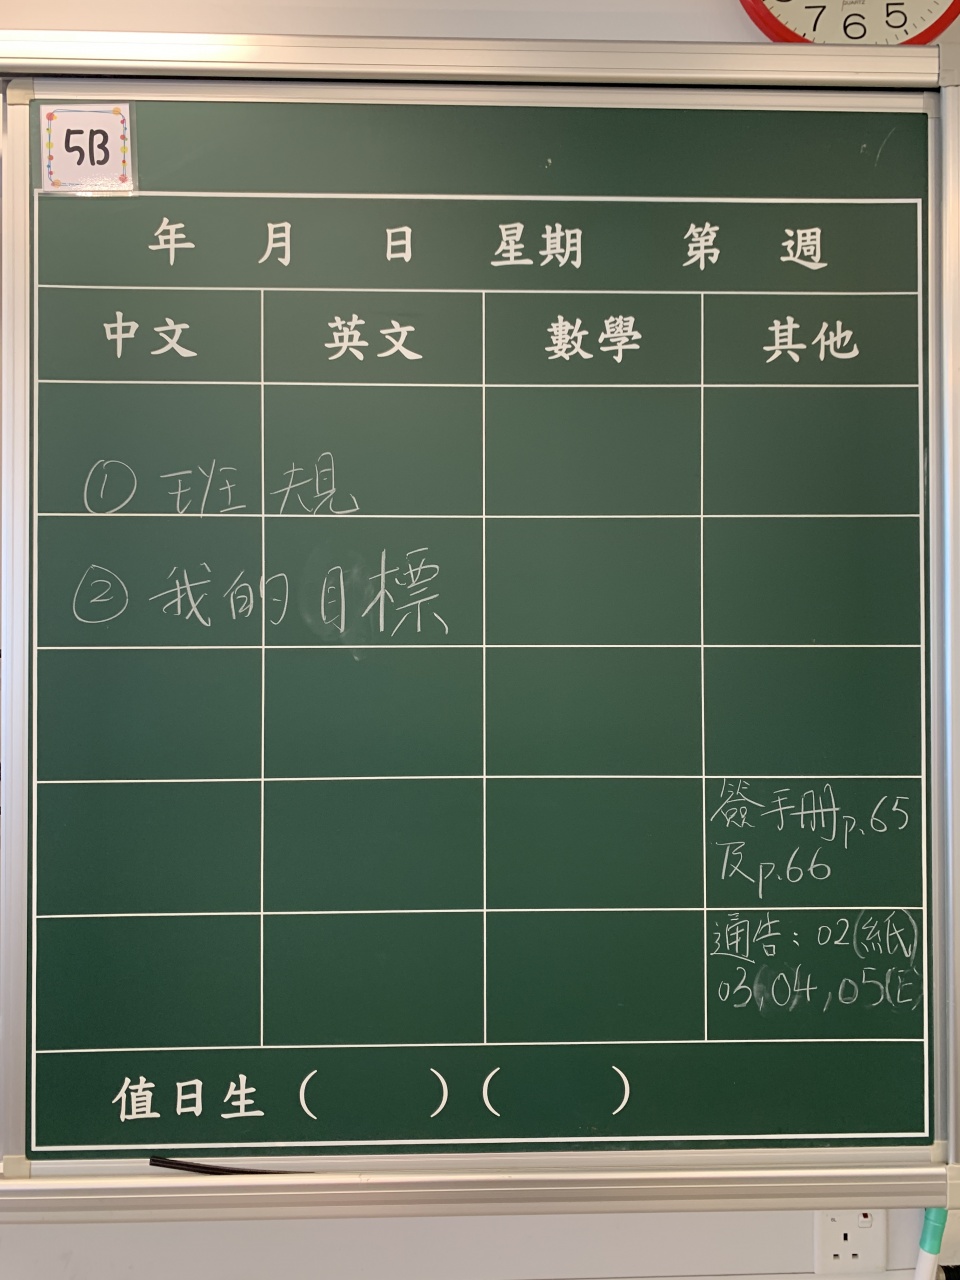 7 6 5
5B
年 月 日 星期 第 週
中文 英文 數學 其他
① 班規
② 我的目標
簽手冊p.65
及p.66
通告：02(紙)
03,04,05(E)
值日生（ ）（ ）